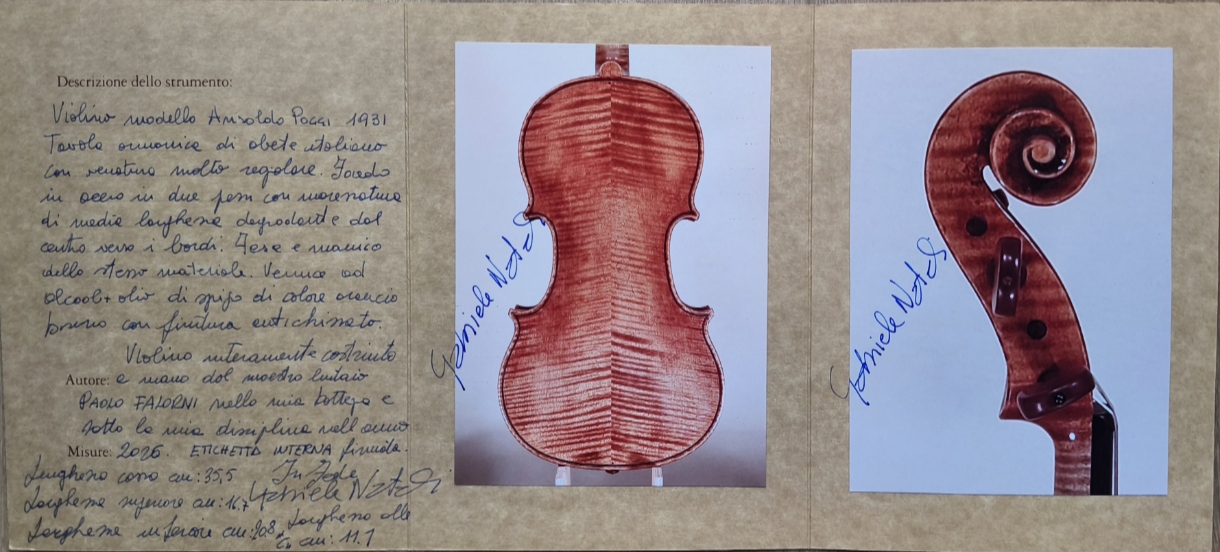 Descrizione dello strumento:
Violino modello Ansoldo Poggi 1931
Tavola armonica di abete italiano
con venatura molto regolare. Fondo
in acero in due pezzi con marezzatura
di media larghezza degradante dal
centro verso i bordi. Fasce e manico
dello stesso materiale. Vernice ad
alcool + olio di spigo di colore arancio
bruno con finitura antichizzato.
Violino interamente costruito
Autore: a mano dal maestro liutaio
PAOLO FALORNI nella mia bottega e
sotto la mia disciplina nell'anno
Misure: 2026. ETICHETTA INTERNA firmata.
Lunghezza cassa cm: 35,5 In Fede
Larghezza superiore cm: 16,7 Gabriele Natali
Larghezza inferiore cm: 20,8 Larghezza alle
C cm: 11.1
Gabriele Natali
Gabriele Natali